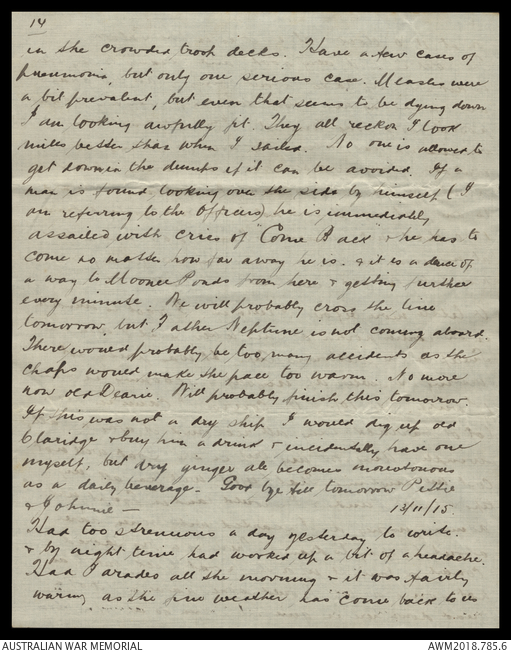 14
in the crowded troop decks. Have a few cases of
pneumonia, but only one serious case. Measles were
a bit prevalent, but even that seems to be dying down
I am looking awfully fit. They all reckon I look
miles better than when I sailed. No one is allowed to
get down in the dumps if it can be avoided. If a
man is found looking over the side by himself (I
am referring to the Officers) he is immediately
assailed with cries of "Come Back" & he has to
come no matter how far away he is. & it is a deuce of
a way to Moonee Ponds from here & getting further
every minute. We will probably cross the line
tomorrow, but Father Neptune is not coming aboard.
There would probably be too many accidents as the
chaps would make the pace too warm. No more
now old Dearie. Will probably finish this tomorrow.
If this was not a dry ship I would dig up old
Claridge & buy him a drink & incidentally have one
myself, but dry ginger ale becomes monotonous
as a daily beverage. Good bye till tomorrow Pettie
& Johnnie —
13/11/15.
Had too strenuous a day yesterday to write.
& by night time had worked up a bit of a headache.
Had Parades all the morning & it was fairly
warm, as the fine weather has come back to us
AUSTRALIAN WAR MEMORIAL
AWM2018.785.6